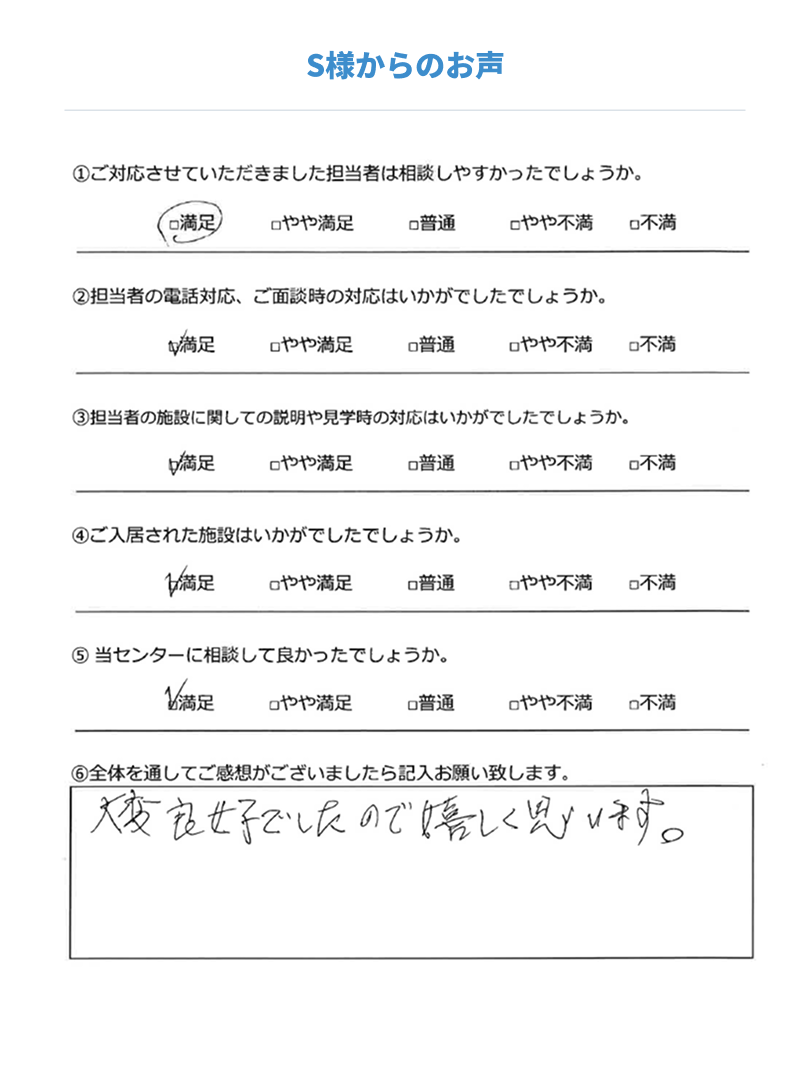 S様からのお声
①ご対応させていただきました担当者は相談しやすかったでしょうか。
□満足 □やや満足 □普通 □やや不満 □不満
②担当者の電話対応、ご面談時の対応はいかがでしたでしょうか。
☑満足 □やや満足 □普通 □やや不満 □不満
③担当者の施設に関しての説明や見学時の対応はいかがでしたでしょうか。
☑満足 □やや満足 □普通 □やや不満 □不満
④ご入居された施設はいかがでしたでしょうか。
☑満足 □やや満足 □普通 □やや不満 □不満
⑤ 当センターに相談して良かったでしょうか。
☑満足 □やや満足 □普通 □やや不満 □不満
⑥全体を通してご感想がございましたら記入お願い致します。
大変良好でしたので嬉しく思います。